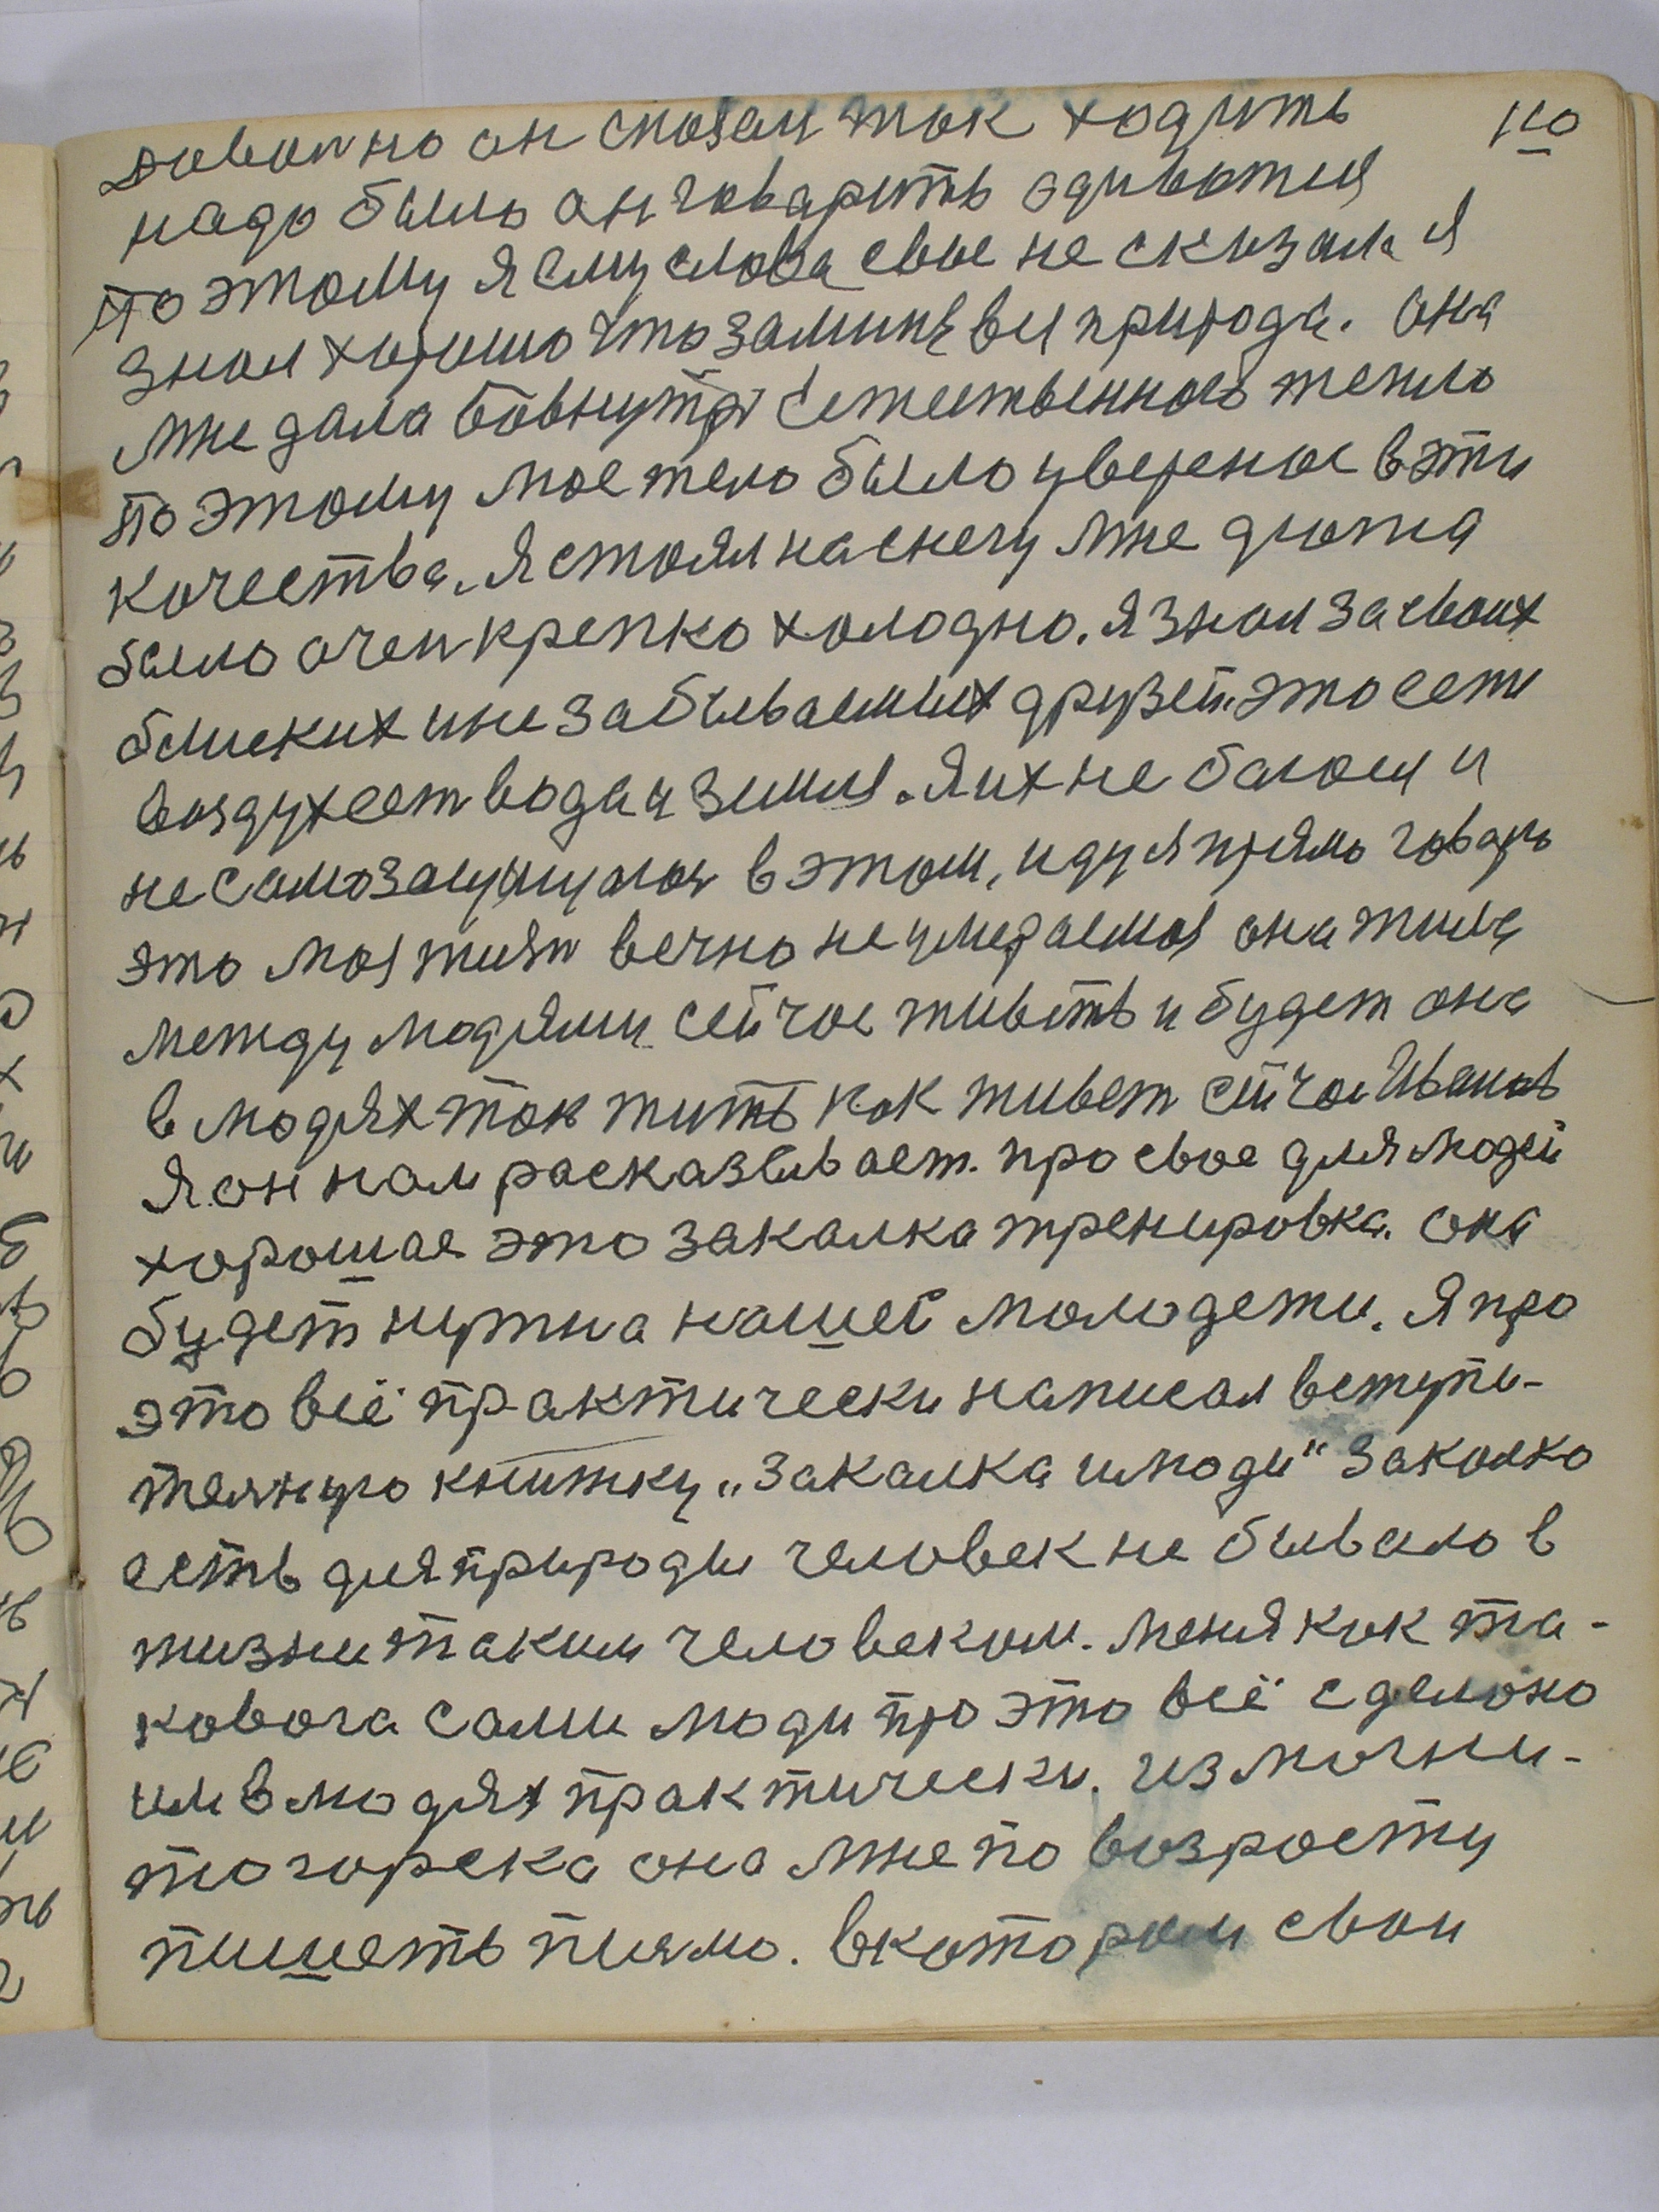 110
но он сказал так ходить
надо было он говарить одиватия
по этому я ему слова свое не сказал я
знал хорошо что за мине вся природа. она
мне дала вовнутрь естественного тепло
по этому мое тело было увереное в эти
качества. Я стоял на снегу мне
было очен крепко холодно. я знал за своих
блиских и не забываемых друзей. это есть
воздух ест вода и земля. я их не баюся и
не самозащищаюся в этом, иду я прямо говарю
это моя жизн вечно не умераемая она жила
между людями сейчас живёть и будет она
в людях так жить как живет сейчас Иванов
Я он нам расказывает. про свое для людей
хорошае это закалка тренировка. она
будет нужна нашей молодежи. Я про
это всё практически написал вступи-
телнную книжку „закалка и люди" закалка
есть для природы человек не бывало в
жизни таким человеком. меня как та-
ковога сами люди про это всё сделано
им в людях практически. из магни-
тогорска она мне по возросту
пишеть писмо. в котором свои